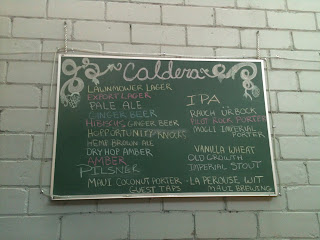 Caldera
LAWNMOWER LAGER
EXPORT LAGER
PALE ALE
GINGER BEER
HIBISCUS GINGER BEER
HOPPORTUNITY KNOCKS
HEMP BROWN ALE
DRY HOP AMBER
AMBER
PILSNER
IPA
RAUCH ÜR BOCK
PILOT ROCK PORTER
MOGLI IMPERIAL
PORTER
VANILLA WHEAT
OLD GROWTH
IMPERIAL STOUT
MAUI COCONUT PORTER - LA PEROUSE WIT
GUEST TAPS MAUI BREWING